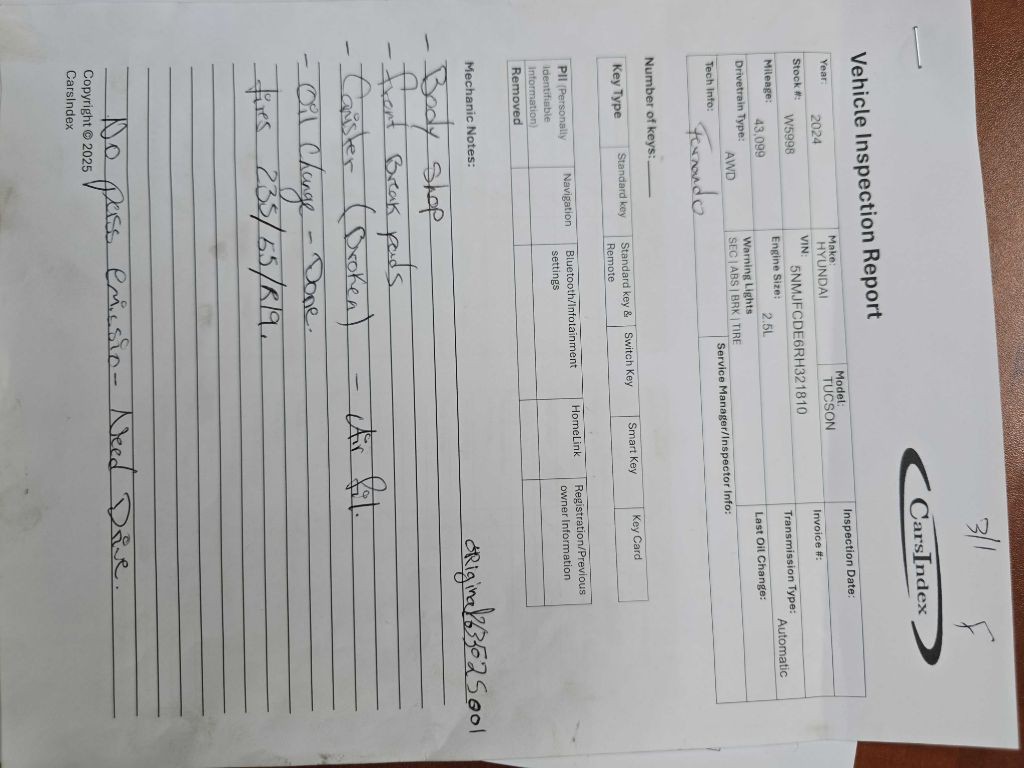 3/1 F
CarsIndex
Vehicle Inspection Report
Year: 2024 Make: HYUNDAI Model: TUCSON Inspection Date:
Stock #: W5998 VIN: 5NMJFCDE6RH321810 Invoice #:
Mileage: 43,099 Engine Size: 2.5L Transmission Type: Automatic
Drivetrain Type: AWD Warning Lights SEC | ABS | BRK | TIRE Last Oil Change:
Tech Info: Fernando Service Manager/Inspector Info:
Number of keys:
Key Type Standard key Standard key & Remote Switch Key Smart Key Key Card
PII (Personally Identifiable Information) Removed Navigation Bluetooth/Infotainment settings HomeLink Registration/Previous owner Information
Mechanic Notes:
- Body Shop
- front Break pads
- Canister (Broken) - Air fil.
- Oil Change - Done.
tires 235/55/R19.
No pass emission - Need Drive.
Copyright © 2025
CarsIndex